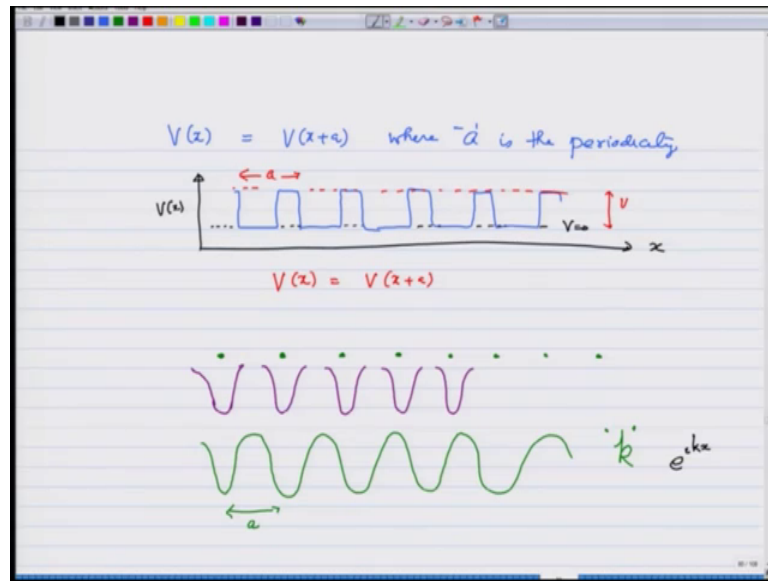 V(x) = V(x+a) where 'a' is the periodicity
← a →
V(x)
V
V=0
x
V(x) = V(x+a)
a
'k' e^{ikx}